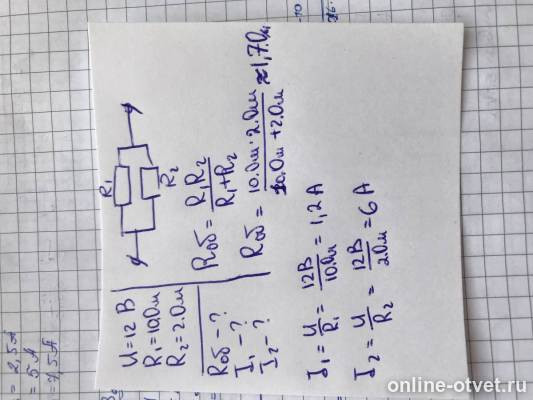 U=12 В
R₁=10Ом
R₂=2Ом
Rоб-?
I₁-?
I₂-?
R₁
R₂
Rоб = R₁R₂ / R₁+R₂
Rоб = 10Ом·2Ом / 10Ом+2Ом ≈1,7Ом
I₁ = U/R₁ = 12В/10Ом = 1,2А
I₂ = U/R₂ = 12В/2Ом = 6А
= 2,5А
= 5А
= 7,5А
online-otvet.ru